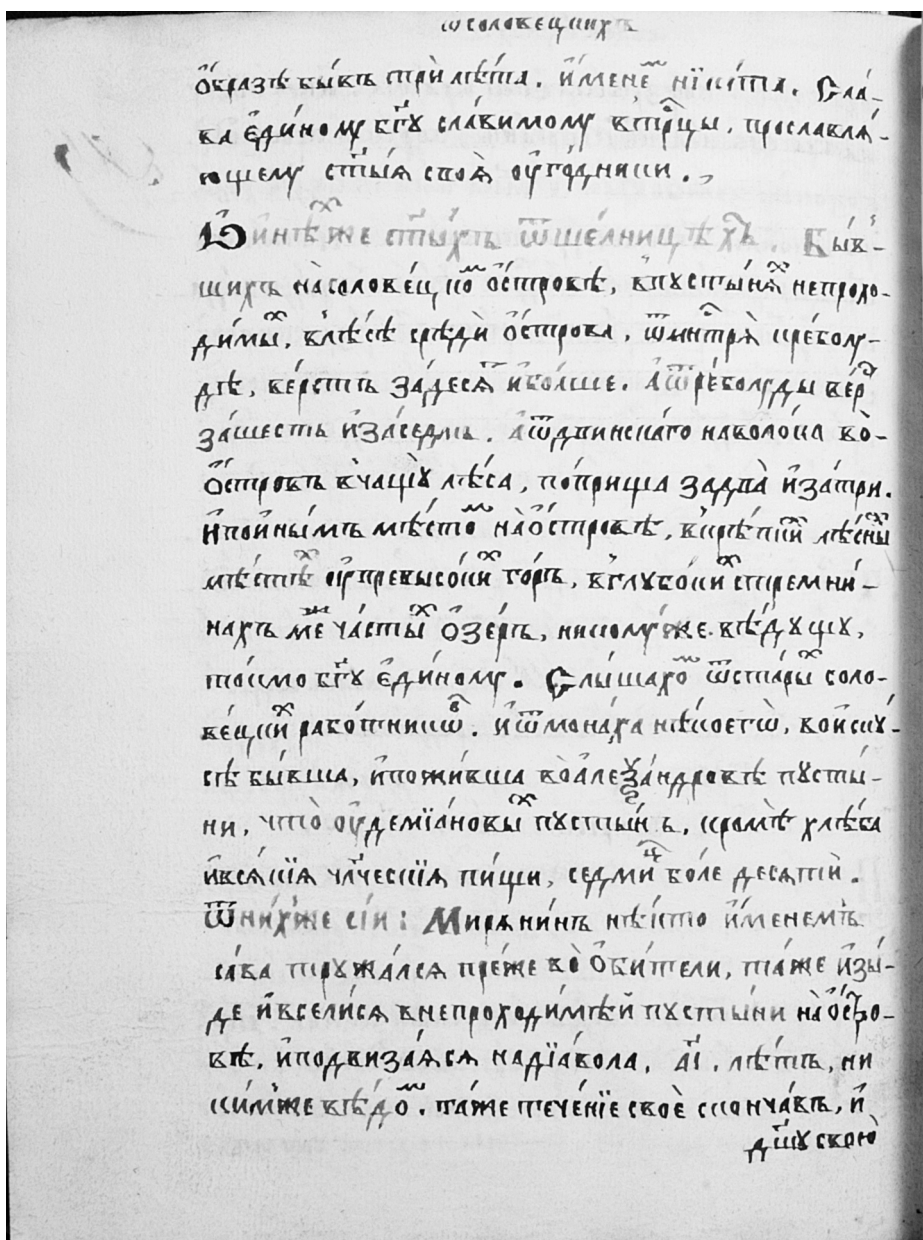 ѡ соловецкихъ
ѻ҆́бразѣ бы́въ трѝ лѣ́та. и҆́менеⷨ нїки́та. Сла́-
ва є҆ди́ному бг҃у сла́вимому в трⷪ҇цы, прославлѧ́-
ющему ст҃ы́ѧ своѧ̀ ѹ҆го́дники.
Ѽ и҆нѣⷯ же ст҃ы́хъ ѿше́лницѣхъ. Бы́в-
шихъ на соловє́цкоⷨ ѻ҆́стровѣ, в пусты́нѧⷯ непрохо-
ди́мыⷯ, в лѣ́сѣ средѝ ѻ҆́строва, ѿ мнⷭ҇трѧ̀ к ре́болу-
дѣ, ве́рстъ за́ десѧⷮ и҆ бо́лше. А҆ ѿ ре́болуды веⷬ҇
за́ шесть и҆ за́ седмь. а҆ ѿ двинска́го наволо́ка во̀
ѻ҆́стровъ в ча́щꙋ лѣ́са, по́прища за два̀ и҆ за́ три.
И҆ по и҆ны́мъ мѣ́стоⷨ на̀ ѻ҆́стровѣ, в крѣ́пкиⷯ лѣ́сныⷯ
мѣ́стѣⷯ ѹ҆ превысо́киⷯ го́ръ, в глубо́киⷯ стремни́-
нахъ меⷤ ча́стыⷯ ѻ҆зе́ръ, никому́же вѣ́дущу,
то́кмо бг҃у є҆ди́ному. Слы́шахоⷨ ѿ ста́рыⷯ соло-
ве́цкиⷯ рабо́тникѡⷡ. и҆ ѿ мона́ха нѣ́коегѡ, во и҆ску́-
сѣ бы́вша, и҆ пожи́вша во а҆леѯа́ндровѣ пусты́-
ни, что̀ ѹ҆ демїа́новыⷯ пусты́нь, кромѣ̀ хлѣ́ба
и҆ всѧ́кїѧ чл҃ческїѧ пи́щи, седми́ⷰ бо́ле десѧти́.
Ѿ ни́хже сі́и: Мирѧни́нъ нѣ́кто и҆́менемъ
са́ва тружа́лсѧ пре́же во ѻ҆би́тели, та́же и҆зы́-
де и҆ всели́сѧ в непроходи́мѣй пусты́ни на̀ ѻ҆́стро-
вѣ, и҆ подвиза́ѧсѧ на дїа́вола, а҃і. лѣ́тъ, ни
ки́мже вѣ́доⷨ. та́же тече́нїе своѐ сконча́въ, и҆
дш҃у свою̀